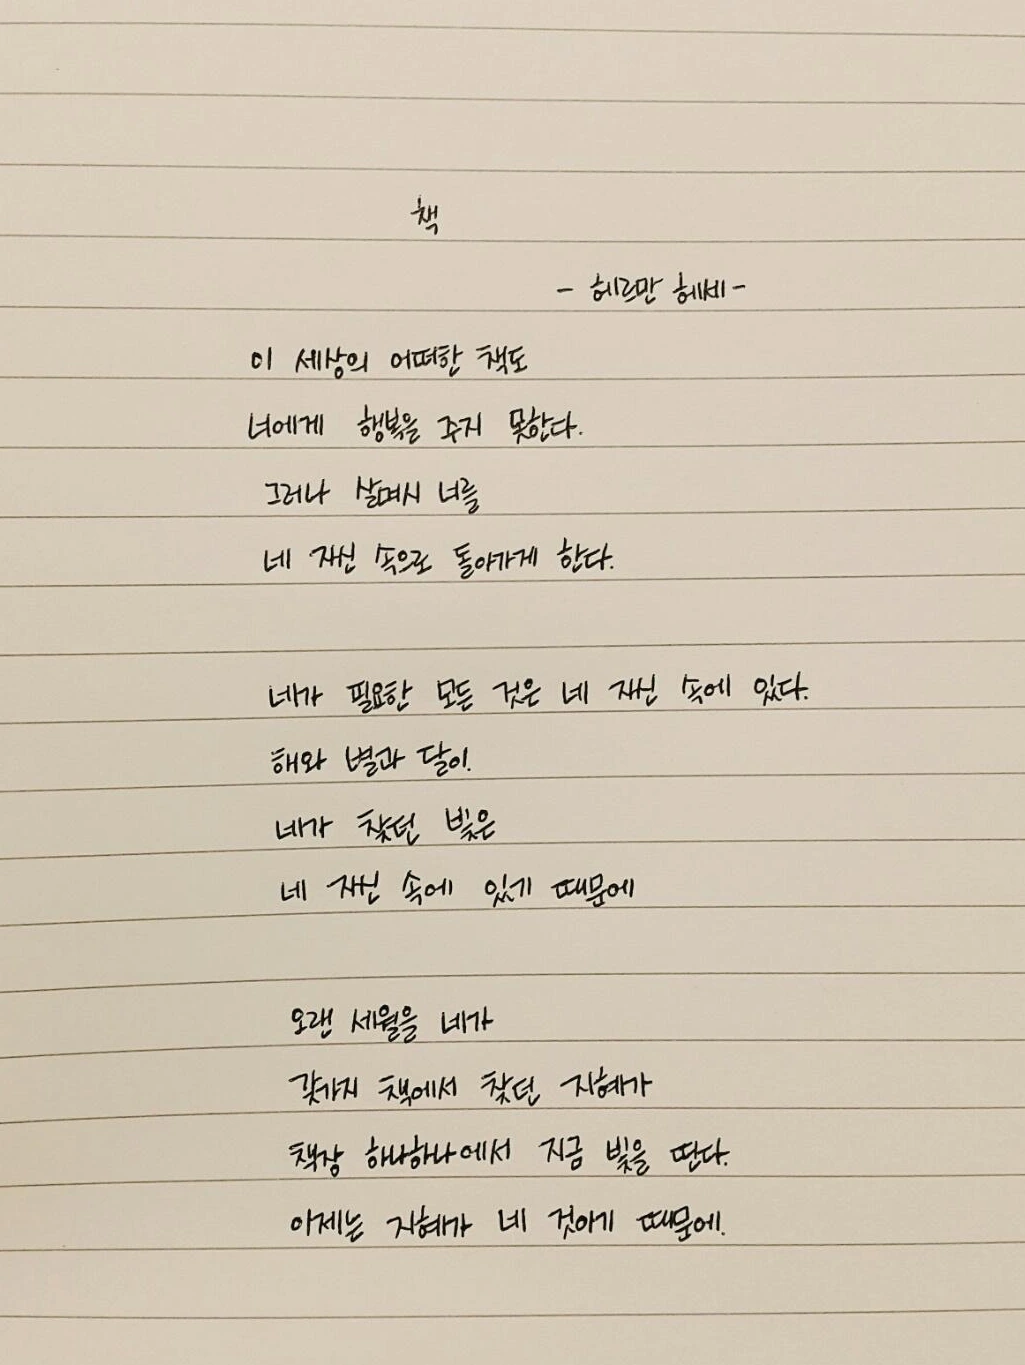 책
- 헤르만 헤세 -
이 세상의 어떠한 책도
너에게 행복을 주지 못한다.
그러나 살며시 너를
네 자신 속으로 돌아가게 한다.
네가 필요한 모든 것은 네 자신 속에 있다.
해와 별과 달이.
네가 찾던 빛은
네 자신 속에 있기 때문에
오랜 세월을 네가
갖가지 책에서 찾던 지혜가
책장 하나하나에서 지금 빛을 띤다.
이제는 지혜가 네 것이기 때문에.